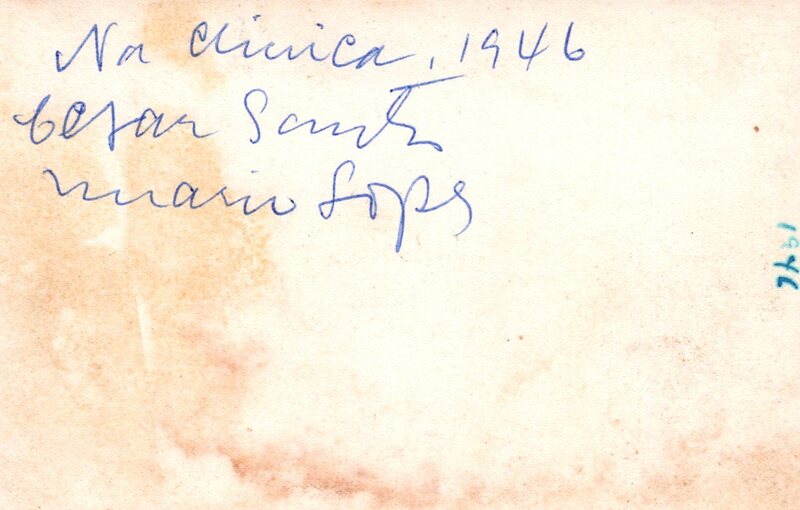 Na clinica, 1946
Cesar Santos
Mario Lopes
1946